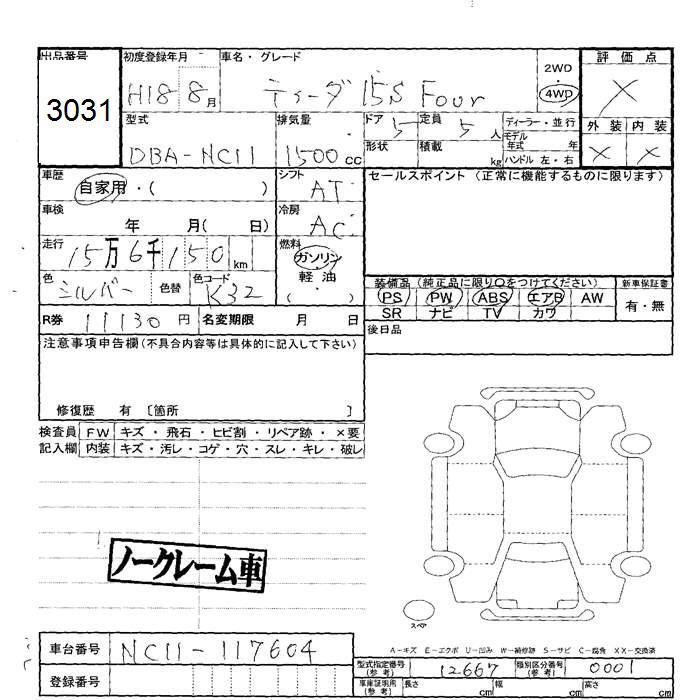 出品番号
3031
初度登録年月
H18 8月
車名・グレード
ティーダ 15S Four
2WD
・
4WD
評価点
×
型式
DBA-NC11
排気量
1500cc
ドア 5
定員 5人
形状
積載 kg
ディーラー・並行
モデル年式 年
ハンドル 左・右
外装
内装
×
×
車歴
自家用・( )
シフト
AT
車検
年 月( 日)
冷房
AC
走行
15万6千150km
燃料
ガソリン
軽油
( ・ )
色
シルバー
色替
色コード
K32
R券 11130円
名変期限 月 日
セールスポイント (正常に機能するものに限ります)
装備品 (純正品に限り○をつけてください)
新車保証書
PS PW ABS エアB AW
SR ナビ TV カワ
有・無
後日品
注意事項申告欄(不具合内容等は具体的に記入して下さい)
修復歴 有 〔箇所 〕
検査員記入欄
FW キズ・飛石・ヒビ割・リペア跡・×要
内装 キズ・汚レ・コゲ・穴・スレ・キレ・破レ
ノークレーム車
スペア
A-キズ E-エクボ U-凹み W-補修跡 S-サビ C-腐食 XX-交換済
車台番号
NC11-117604
登録番号
型式指定番号(参考)
12667
類別区分番号(参考)
0001
車庫証明用(参考)
長さ cm
幅 cm
高さ cm